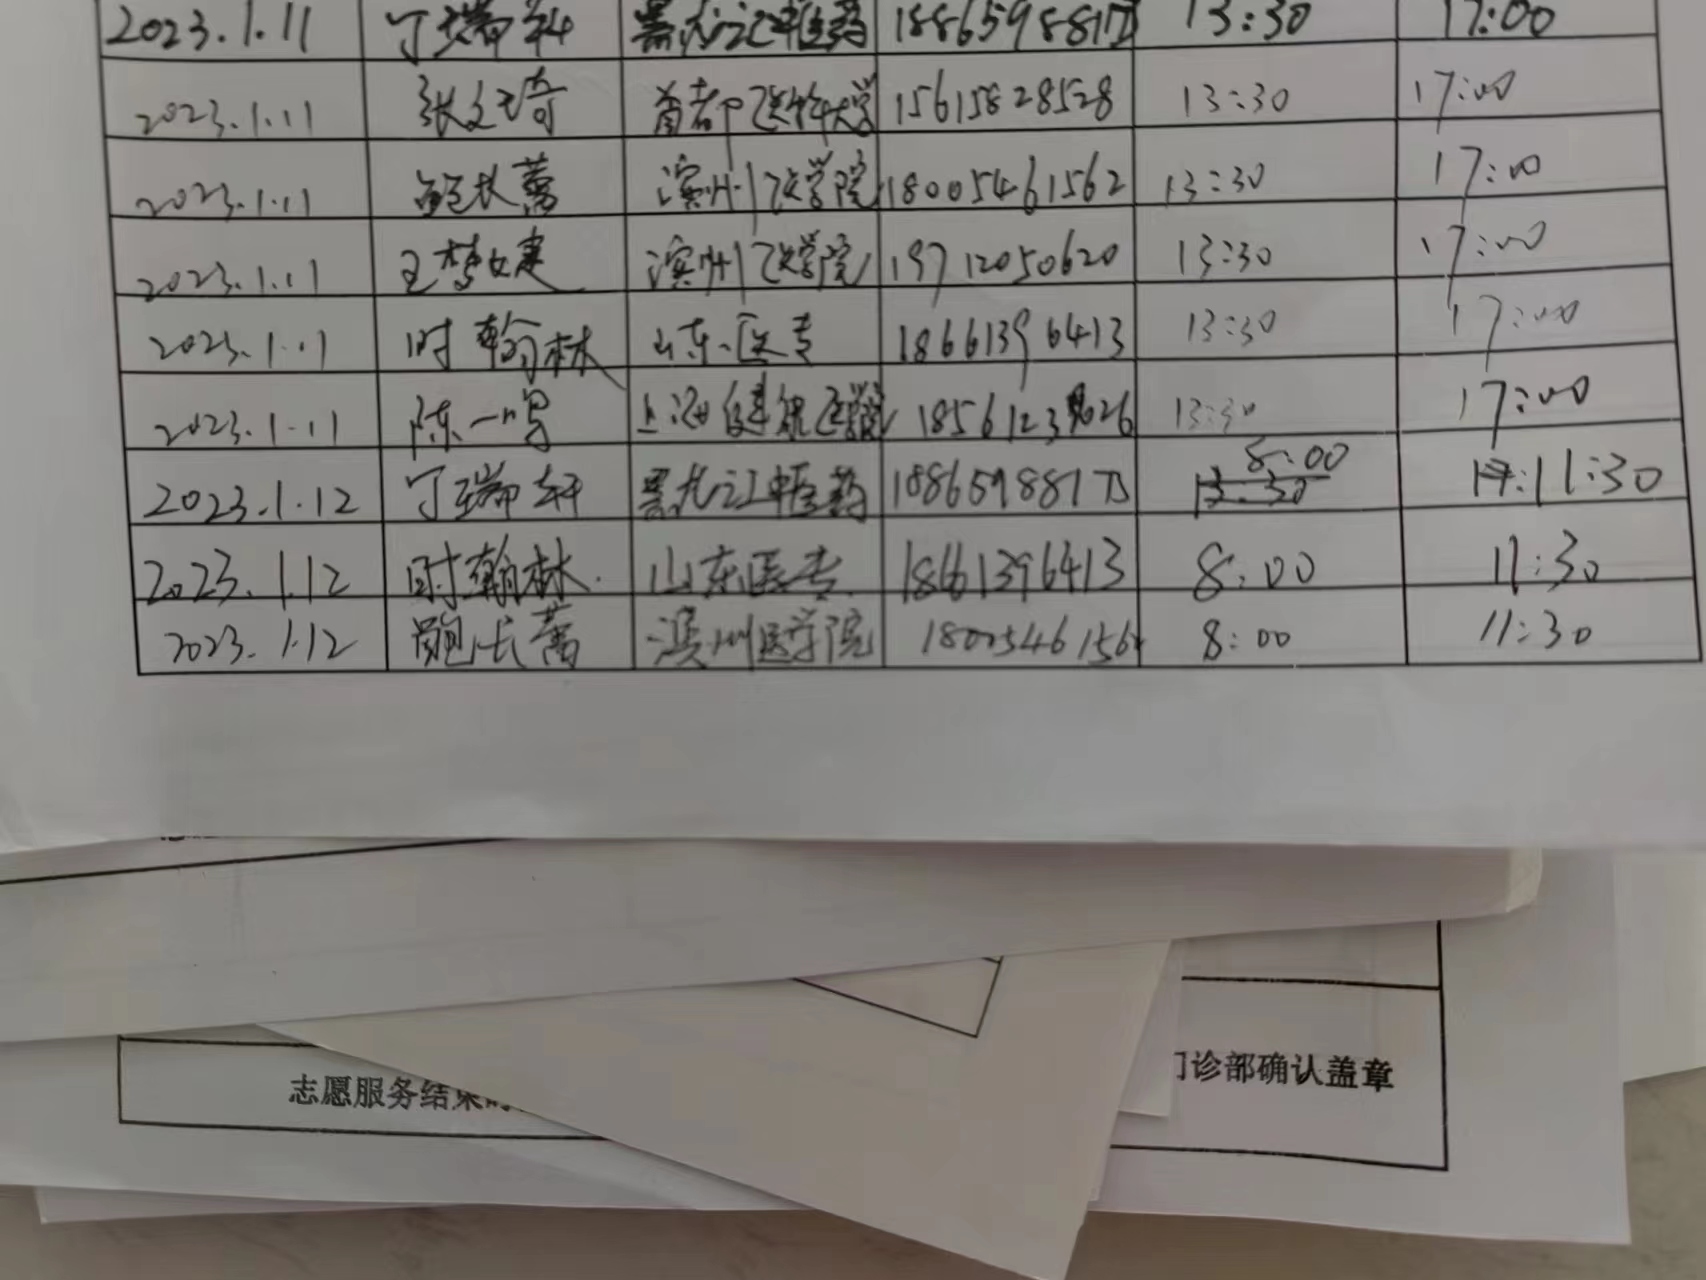 2023.1.11 丁瑞轩 黑龙江中医药 188659881 13:30 17:00
2023.1.11 张文琦 首都医科大学 15615828528 13:30 17:00
2023.1.11 鲍长蕾 滨州医学院 18005461562 13:30 17:00
2023.1.11 王梦婕 滨州医学院 19712050620 13:30 17:00
2023.1.11 时翰林 山东医专 18661396413 13:30 17:00
2023.1.11 陈一鸣 上海健康医学院 1856123 026 13:30 17:00
2023.1.12 丁瑞轩 黑龙江中医药 188659881 8:00 11:30
2023.1.12 时翰林 山东医专 18661396413 8:00 11:30
2023.1.12 鲍长蕾 滨州医学院 1800546156 8:00 11:30
志愿服务结束
门诊部确认盖章